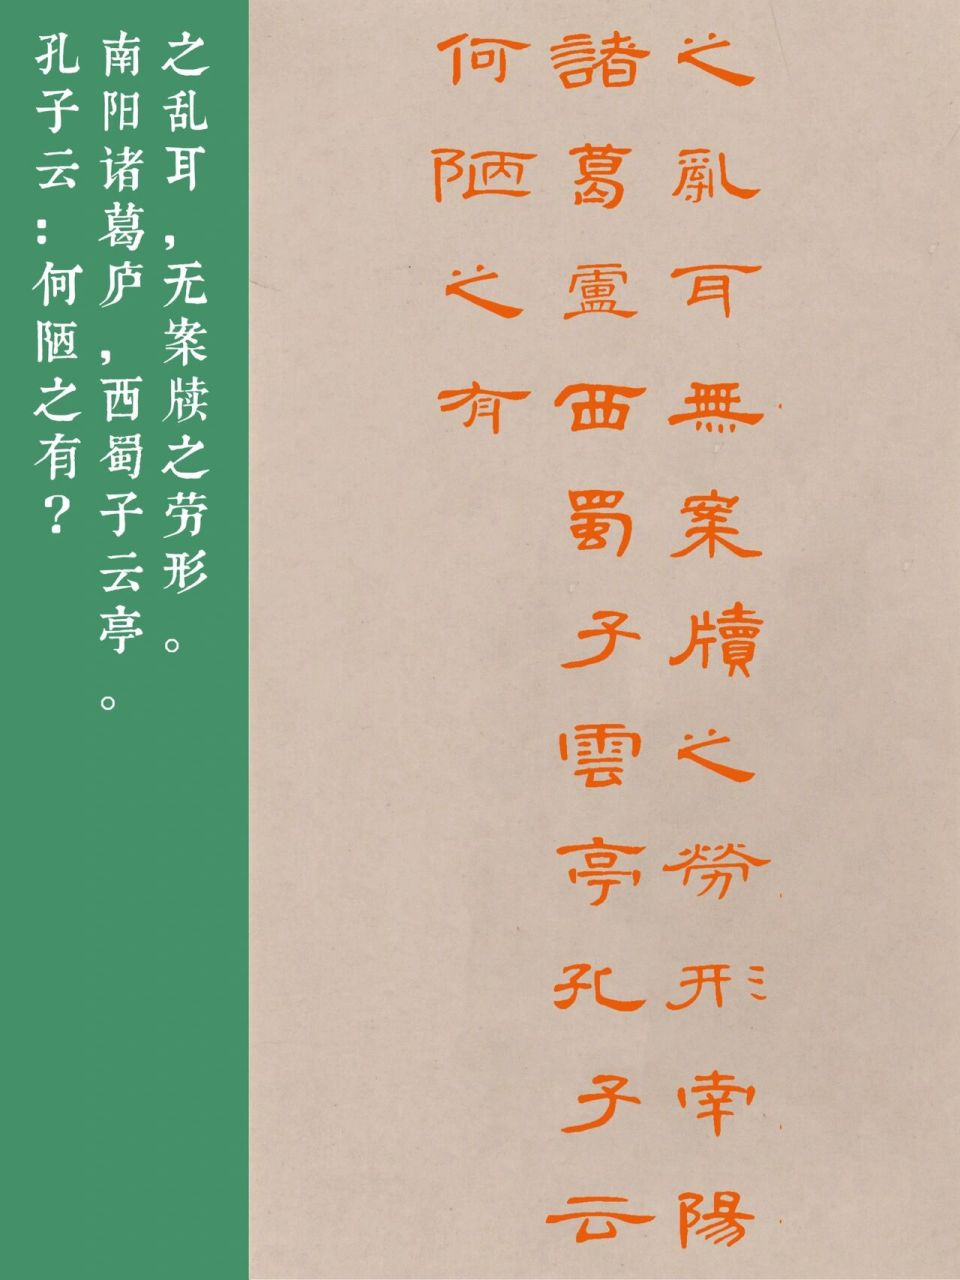 之乱耳，无案牍之劳形。
南阳诸葛庐，西蜀子云亭。
孔子云：何陋之有？
之亂耳無案牘之勞形南陽
諸葛廬西蜀子雲亭孔子云
何陋之有